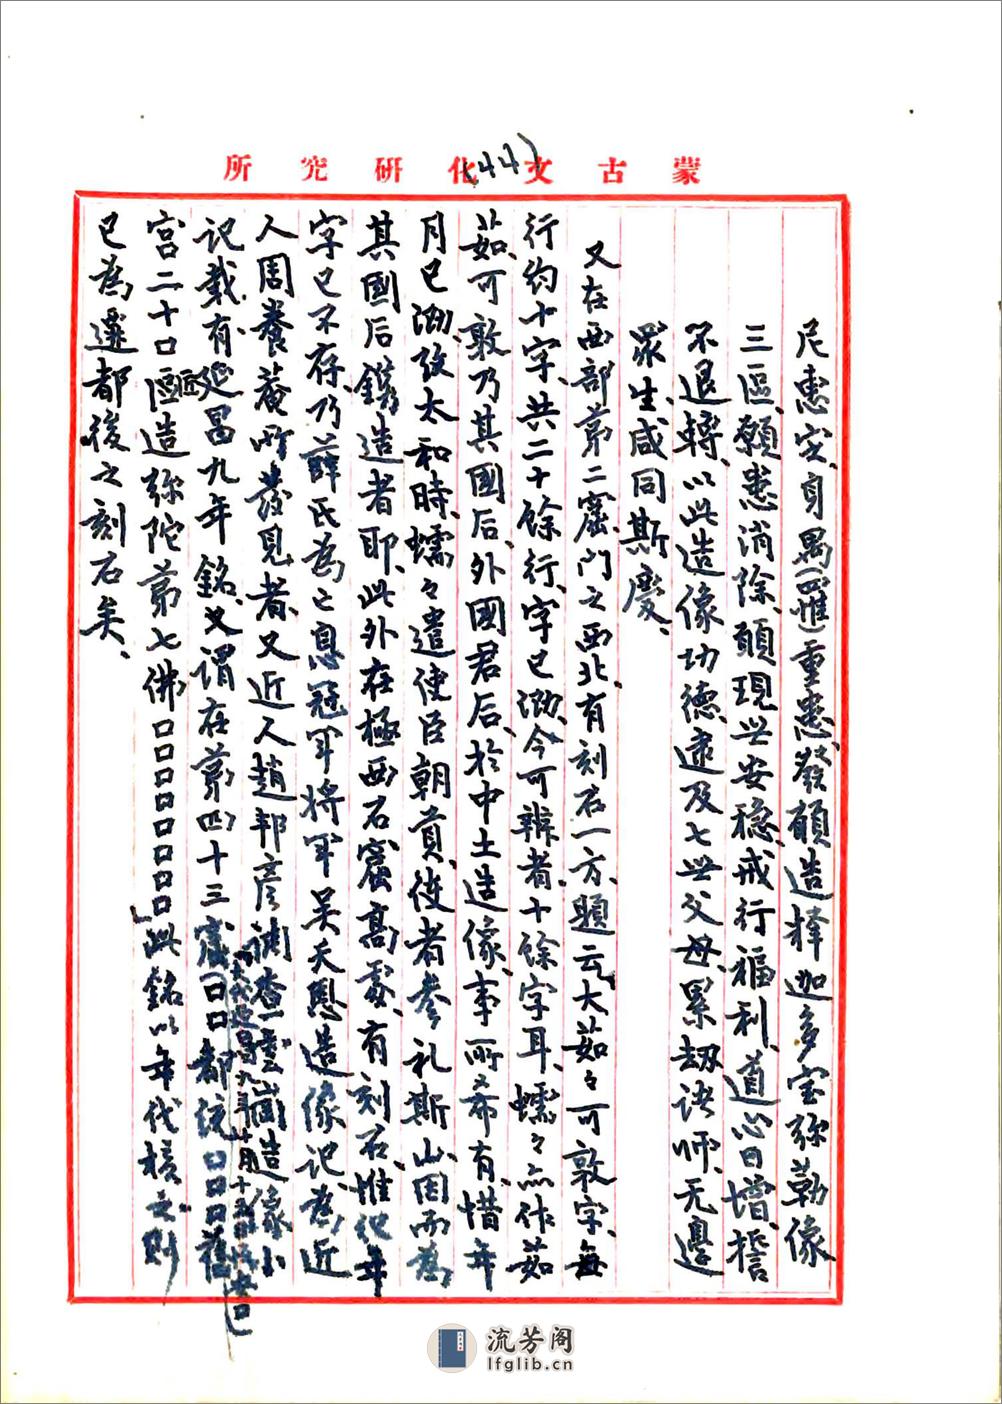 蒙古文化研究所
(44)
尼惠定、身罹重患、發願造釋迦多宝弥勒像
三區、願患消除、願現世安穏、戒行福利、道心日增、誓
不退轉、以此造像功德、逮及七世父母、累劫諸师、无邊
眾生、咸同斯慶、
又在西部第二窟門之西北、有刻石一方、題云、大茹々可敦字、每
行約十字、共二十餘行、字已泐、今可辨者十餘字耳、蠕々亦作茹
茹、可敦乃其國后、外國君后、於中土造像、事所希有、惜年
月已泐、攷太和時、蠕々遣使臣朝貢、使者參礼斯山、因而為
其國后鐫造者耶、此外在極西石窟高處、有刻石、惟紀年
字已不存、乃薛氏為亡息冠军將军吴天恩造像记、為近
人周養菴所發見者、又近人趙邦彥調查雲崗造像小
记載、有延昌九年銘、又謂在第四十三窟、口口都統口口口舊
宮二十口區造弥陀第七佛口口口口口口口此銘以年代核之、則
已為遷都後之刻石矣、
流芳阁
lfglib.cn